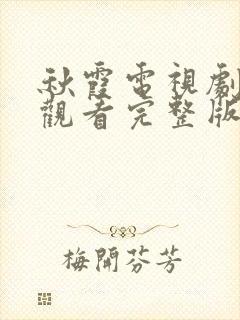 秋霞電視劇
觀看完整版
梅開芬芳